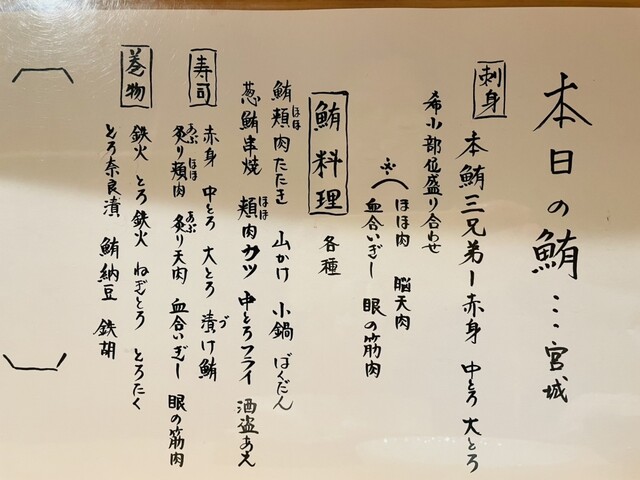 本日の鮪…宮城
刺身
本鮪三兄弟ー赤身 中とろ 大とろ
希少部位盛り合わせ
ほほ肉 脳天肉
血合いぎしー 眼の筋肉
鮪料理 各種
鮪頬肉たたき 山かけ 小鍋 ばくだん
ほほ
葱鮪串焼 頬肉カツ 中とろフライ 酒盗あえ
ほほ
寿司
赤身 中とろ 大とろ 漬け鮪
づ
炙り頬肉 炙り天肉 血合いぎしー 眼の筋肉
あぶ ほほ あぶ
巻物
鉄火 とろ鉄火 ねぎとろ とろたく
とろ奈良漬 鮪納豆 鉄胡